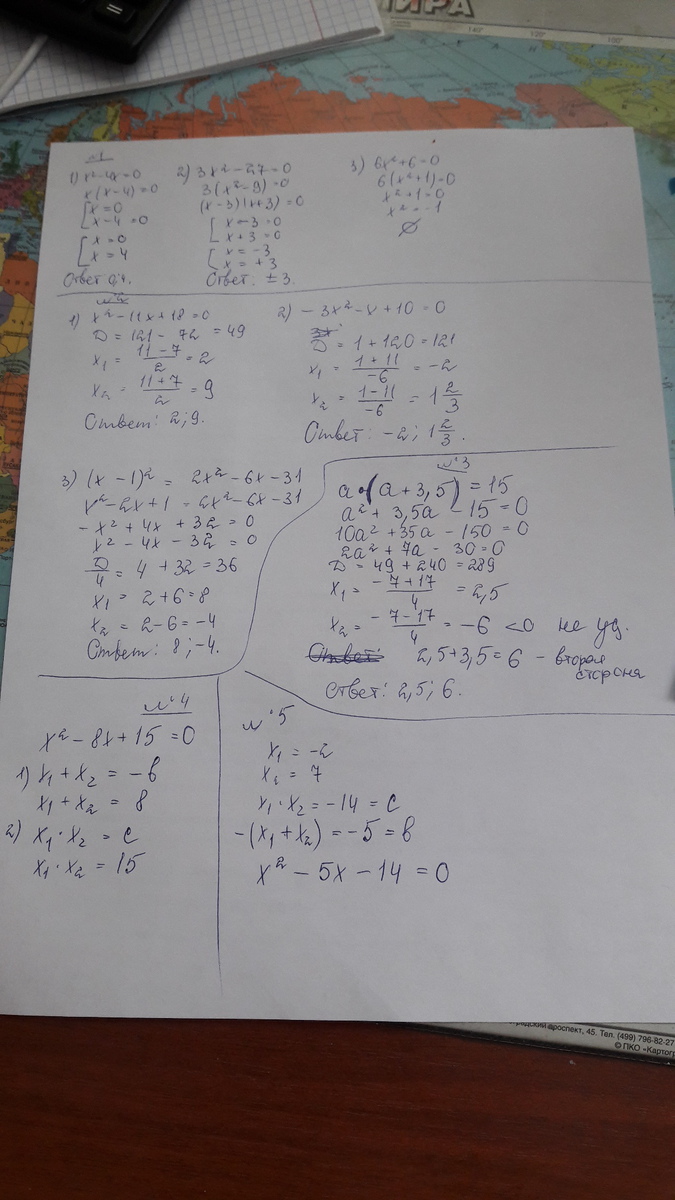 ИРА
140°
120°
100°
№1
1) x²-4x=0
x(x-4)=0
[x=0
[x-4=0
[x=0
[x=4
Ответ 0;4.
2) 3x²-27=0
3(x²-9)=0
(x-3)(x+3)=0
[x-3=0
[x+3=0
[x=-3
[x=+3
Ответ: ±3.
3) 6x²+6=0
6(x²+1)=0
x²+1=0
x²=-1
∅
№2
1) x²-11x+18=0
D=121-72=49
x₁=(11-7)/2=2
x₂=(11+7)/2=9
Ответ: 2;9.
2) -3x²-x+10=0
D=1+120=121
x₁=(1+11)/-6=-2
x₂=(1-11)/-6=1 2/3
Ответ: -2; 1 2/3.
3) (x-1)²=2x²-6x-31
x²-2x+1=2x²-6x-31
-x²+4x+32=0
x²-4x-32=0
D/4=4+32=36
x₁=2+6=8
x₂=2-6=-4
Ответ: 8;-4.
№3
a·(a+3,5)=15
a²+3,5a-15=0
10a²+35a-150=0
2a²+7a-30=0
D=49+240=289
x₁=(-7+17)/4=2,5
x₂=(-7-17)/4=-6<0 не уд.
Ответ: 2,5+3,5=6 - вторая
сторона
Ответ: 2,5; 6.
№4
x²-8x+15=0
1) x₁+x₂=-b
x₁+x₂=8
2) x₁·x₂=c
x₁·x₂=15
№5
x₁=-2
x₂=7
x₁·x₂=-14=c
-(x₁+x₂)=-5=b
x²-5x-14=0
проспект, 45. Тел. (499) 796-82-27
© ПКО «Картог